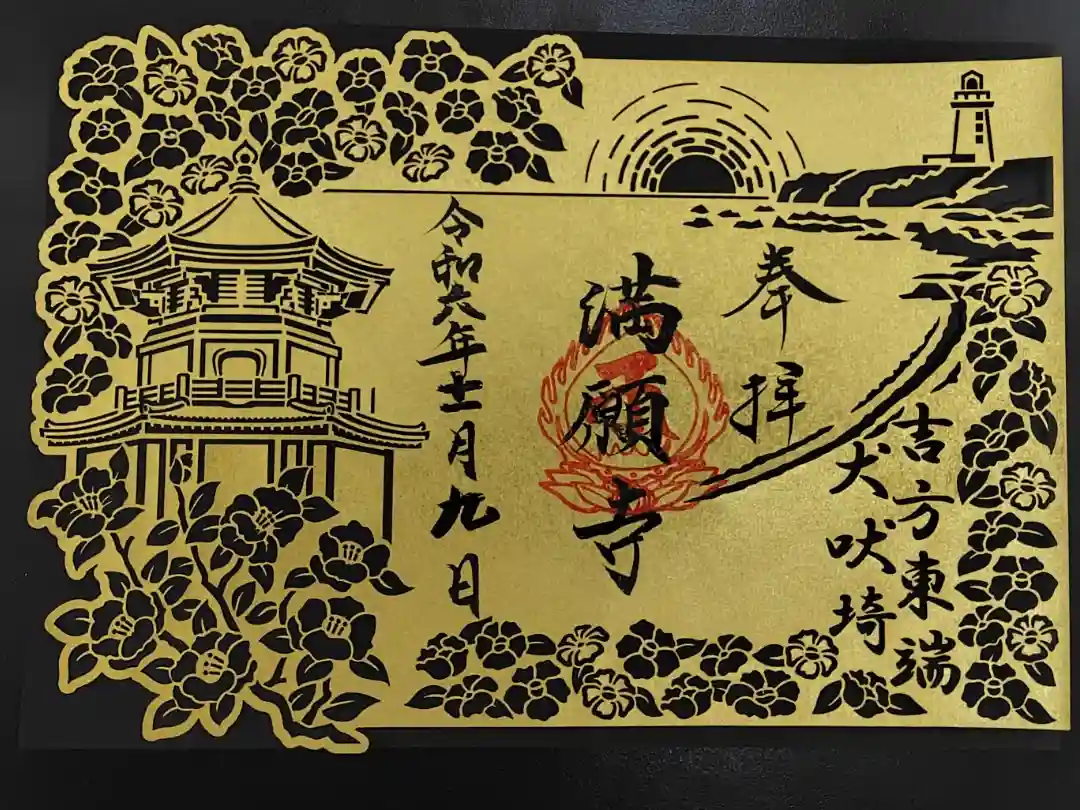 吉方東端
犬吠埼
奉拝
満願寺
令和六年十一月九日